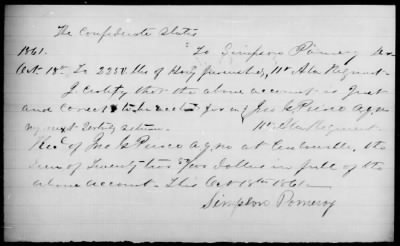 The Confederate States
1861. To Simpson Pomeroy Dr
Oct 18th To 2250 lbs of Hay furnished, 11th Ala Regiment
I certify that the above account is Just
and correct to be
my next
11th Ala Regiment
Recd of Jno G Pierce A.Q.M. at Centreville, the
Sum of Twenty two 50/100 dollars in full of the
above account. This Oct 18th 1861
Simpson Pomeroy